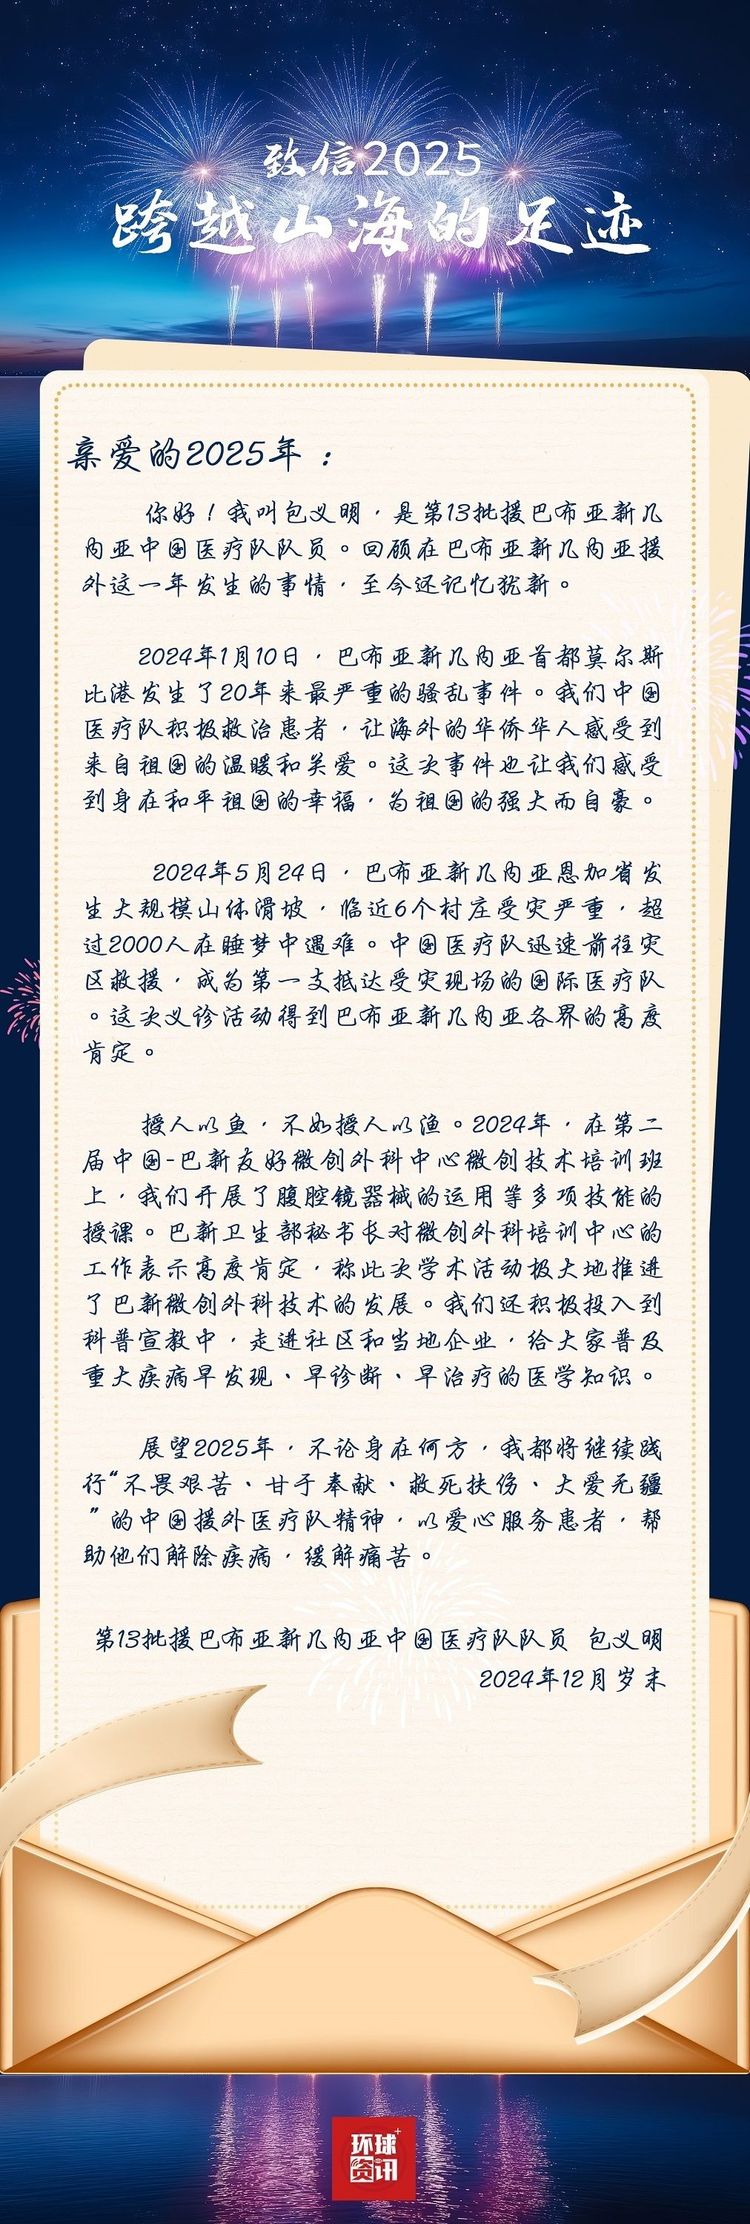 致信2025
跨越山海的足迹
亲爱的2025年：
你好！我叫包义明，是第13批援巴布亚新几
内亚中国医疗队队员。回顾在巴布亚新几内亚援
外这一年发生的事情，至今还记忆犹新。
2024年1月10日，巴布亚新几内亚首都莫尔斯
比港发生了20年来最严重的骚乱事件。我们中国
医疗队积极救治患者，让海外的华侨华人感受到
来自祖国的温暖和关爱。这次事件也让我们感受
到身在和平祖国的幸福，为祖国的强大而自豪。
2024年5月24日，巴布亚新几内亚恩加省发
生大规模山体滑坡，临近6个村庄受灾严重，超
过2000人在睡梦中遇难。中国医疗队迅速前往灾
区救援，成为第一支抵达受灾现场的国际医疗队
。这次义诊活动得到巴布亚新几内亚各界的高度
肯定。
授人以鱼，不如授人以渔。2024年，在第二
届中国-巴新友好微创外科中心微创技术培训班
上，我们开展了腹腔镜器械的运用等多项技能的
授课。巴新卫生部秘书长对微创外科培训中心的
工作表示高度肯定，称此次学术活动极大地推进
了巴新微创外科技术的发展。我们还积极投入到
科普宣教中，走进社区和当地企业，给大家普及
重大疾病早发现、早诊断、早治疗的医学知识。
展望2025年，不论身在何方，我都将继续践
行“不畏艰苦、甘于奉献、救死扶伤、大爱无疆
”的中国援外医疗队精神，以爱心服务患者，帮
助他们解除疾病，缓解痛苦。
第13批援巴布亚新几内亚中国医疗队队员 包义明
2024年12月岁末
环球
资讯+